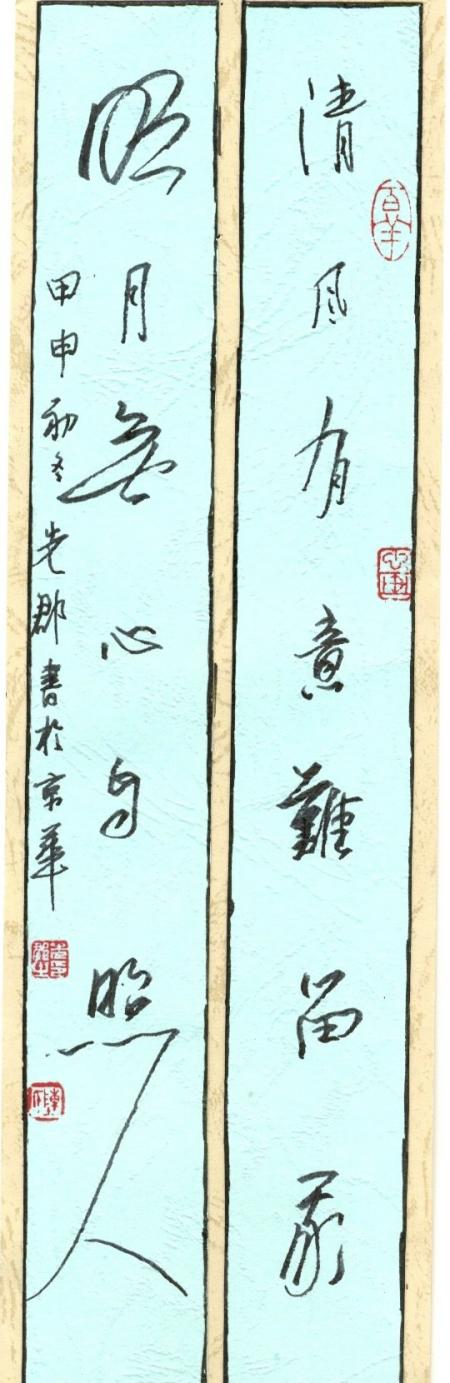 清風有意難留我
明月無心自照人
甲申初冬先郡書於京華